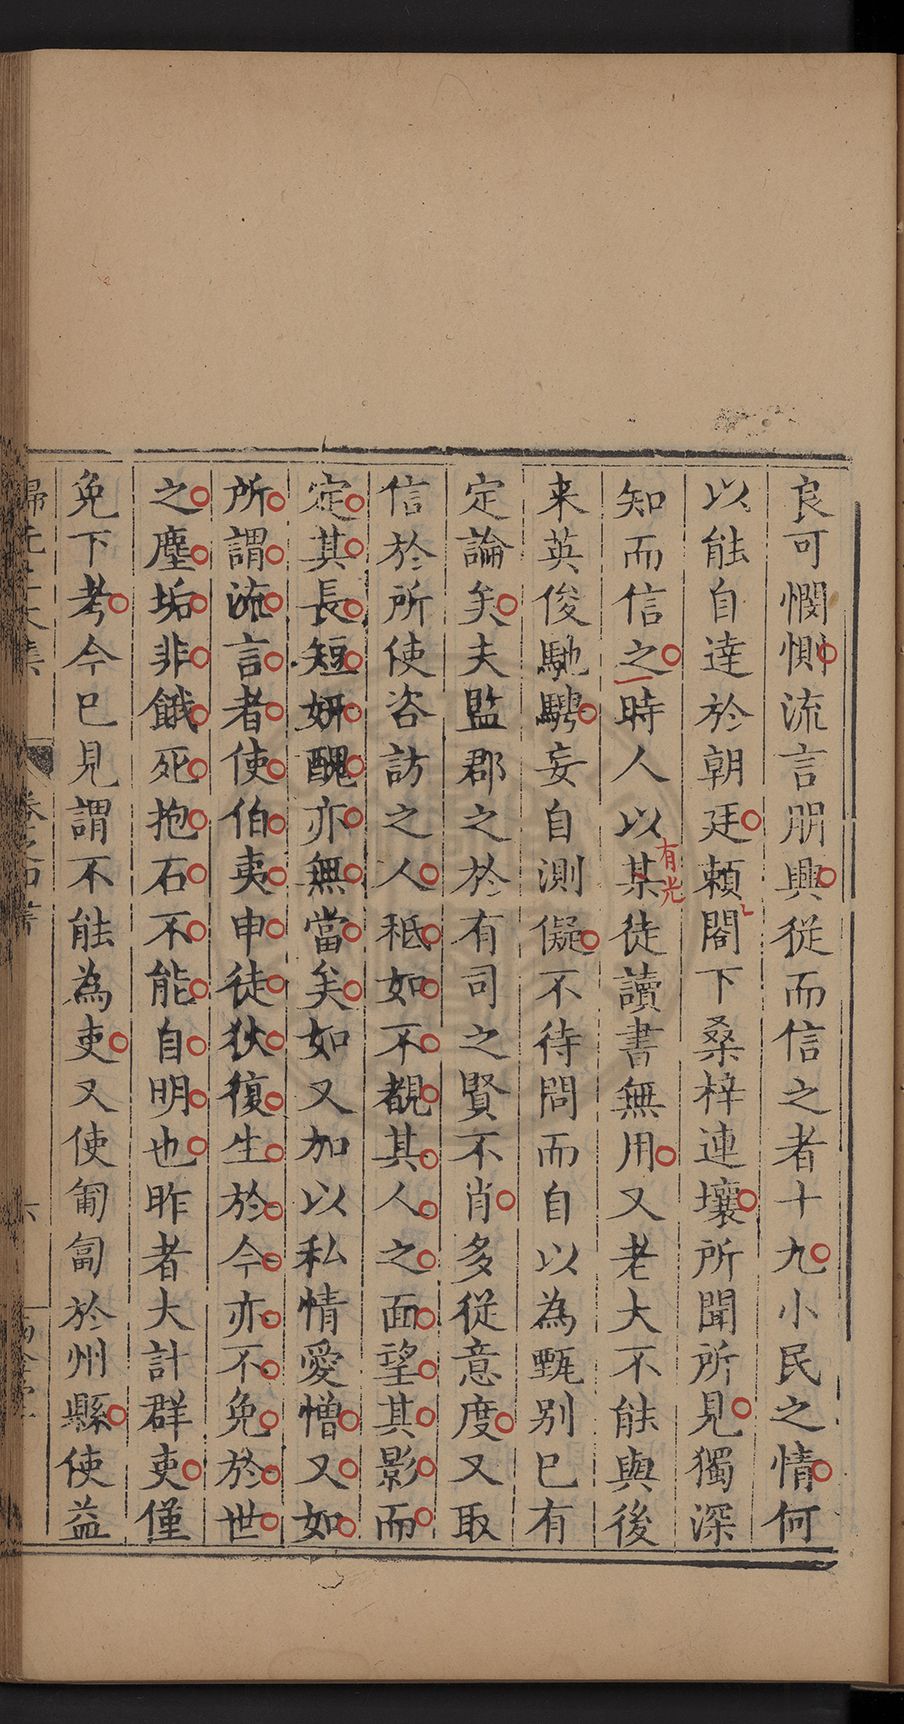 良可憫惻流言朋興從而信之者十九小民之情何
以能自達於朝廷賴閣下桑梓連壤所聞所見獨深
知而信之時人以某徒讀書無用又老大不能與後
有光
来英俊馳騁妄自測儗不待問而自以為甄别已有
定論矣夫監郡之於有司之賢不肖多從意度又取
信於所使咨訪之人秪如不覩其人之面望其影而
定其長短妍醜亦無當矣如又加以私情愛憎又如
所謂流言者使伯夷申徒狄復生於今亦不免於世
之塵垢非餓死抱石不能自明也昨者大計群吏僅
免下考今已見謂不能為吏又使匍匐於州縣使益